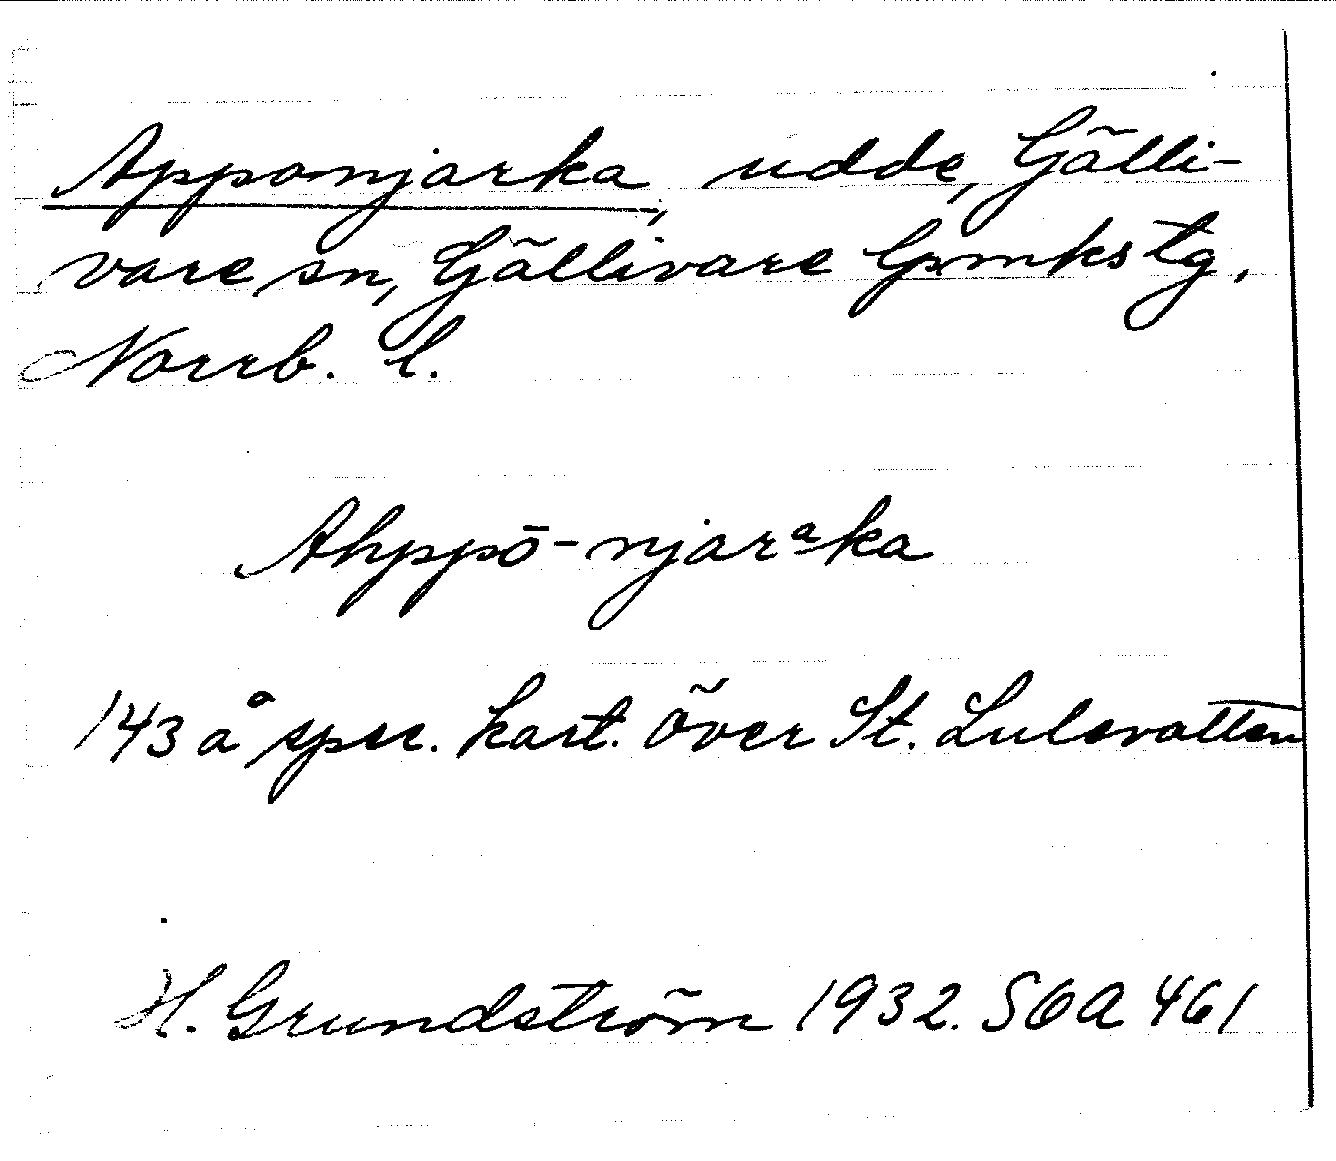 Apponjarka, udde, Gälli-
vare sn, Gällivare lpmkstg,
Norrb. l.
Ahppō-njarᵃka
143 å spec. kart. över St. Lulevatten
H. Grundström 1932. SOA 461